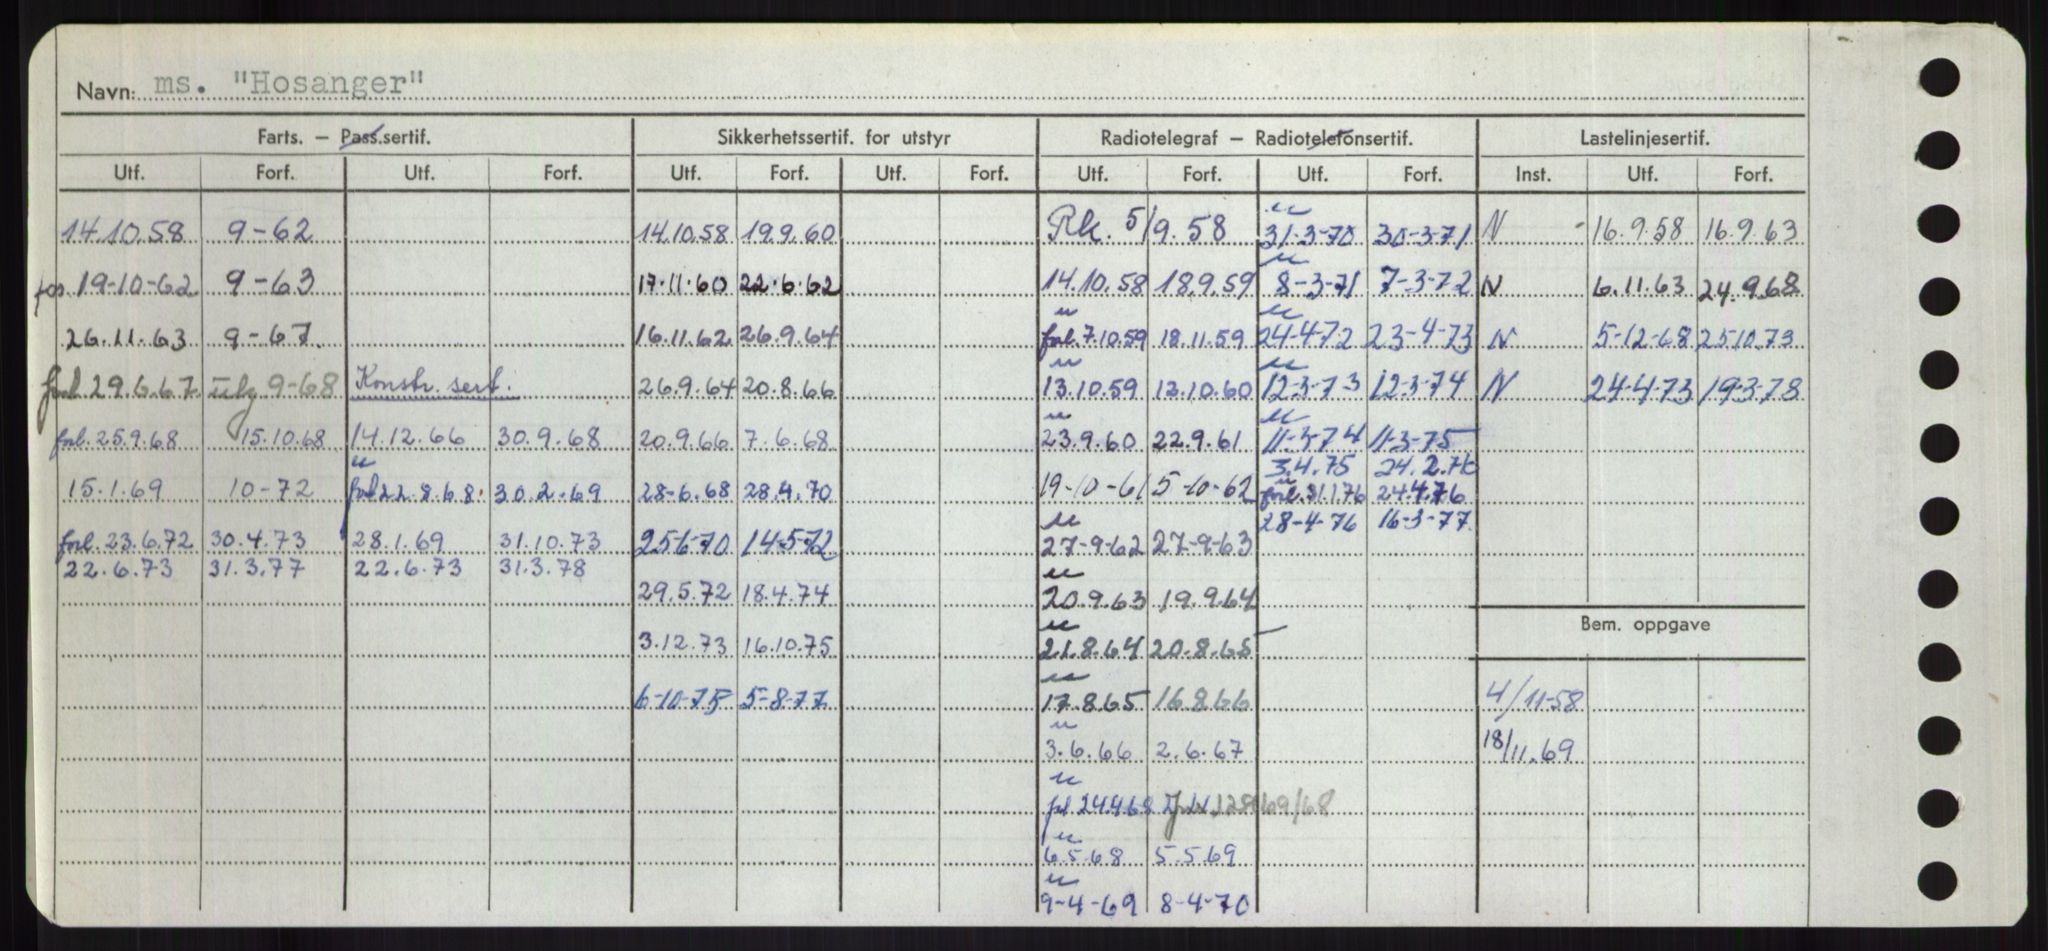 Navn: ms. "Hosanger"
Farts. — Pass.sertif. Sikkerhetssertif. for utstyr Radiotelegraf — Radiotelefonsertif. Lastelinjesertif.
Utf. Forf. Utf. Forf. Utf. Forf. Utf. Forf. Utf. Forf. Utf. Forf. Inst. Utf. Forf.
14.10.58 9-62 14.10.58 19.9.60 Rk. 5/9.58 31-3-70 30-3-71 N 16.9.58 16.9.63
19-10-62 9-63 17.11.60 22.6.62 14.10.58 18.9.59 8-3-71 7-3-72 N 6.11.63 24.9.68
26.11.63 9-67. 16.11.62 26.9.64 forl. 7.10.59 18.11.59 24-4-72 23-4-73 N 5-12-68 25.10.73
forl 29.6.67 9-68 Konstr. sert. 26.9.64 20.8.66 13.10.59 12.10.60 12-3-73 12-3-74 N 24-4-73 19-3-78
forl. 25.9.68 15.10.68 14.12.66 30.9.68 20.9.66 7.6.68 23.9.60 22.9.61 11-3-74 11-3-75
3.4.75 24.2.76
15.1.69 10-72 forl 22.8.68. 30.2.69 28-6.68 28.4.70 19-10-61 5-10-62 forl. 31.1.76 24.4.76
28-4-76 16-3-77
forl. 23.6.72 30.4.73 28.1.69 31.10.73 25-6-70 14-5-72 27-9-62 27-9-63
22.6.73 31.3.77 22.6.73 31.3.78
29.5.72 18.4.74 20.9.63 19.9.64
Bem. oppgave
3.12.73 16.10.75 21.8.64 20.8.65
6-10-75 5-8-77 17.8.65 16.8.66 4/11-58
3.6.66 2.6.67 18/11.69
24.4.68
6.5.68 5.5.69
9-4-69 8-4-70